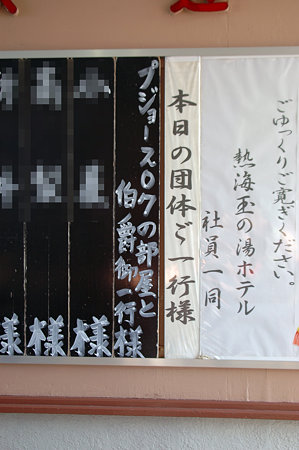 ごゆっくりご寛ぎください。
熱海玉の湯ホテル
社員一同
本日の団体ご一行様
プジョー207の部屋と
伯爵御一行様
様
様
様